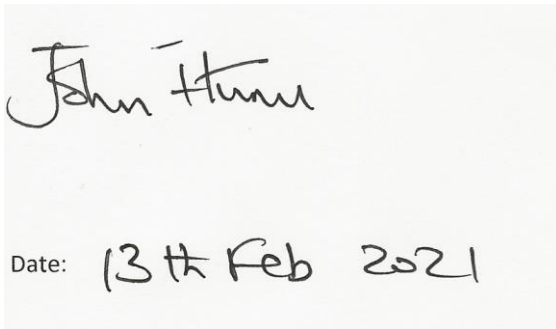 John
Date: 13th Feb 2021